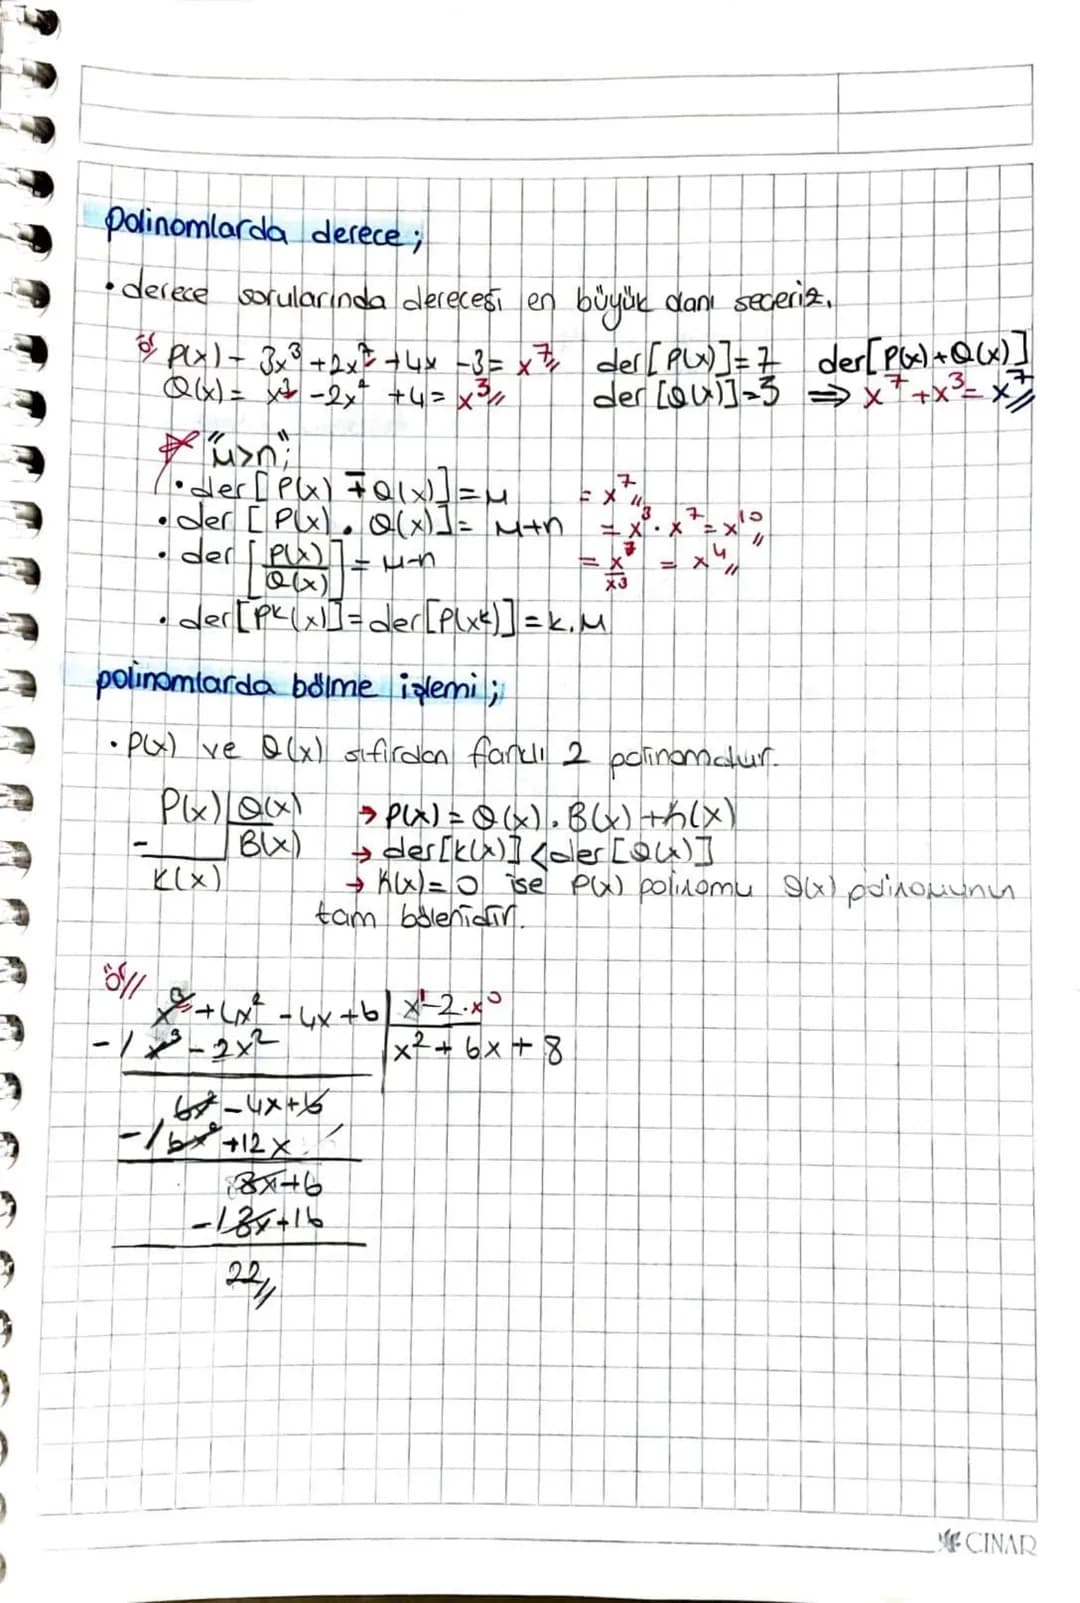 polinomlarda derece;
• derece sorularında derecesi en büyük olanı seçeriz.
ör// P(x) = 3x³ + 2x⁷ + 4x - 3 = x⁷// der[P(x)] = 7 der[P(x) + Q(x)]
Q(x) = x³ - 2x² + 4 = x³// der[Q(x)] = 3 ⇒ x⁷ + x³ = x⁷//
"m>n";
• der[P(x) ∓ Q(x)] = m = x⁷//
• der[P(x) . Q(x)] = m+n = x³ . x⁷ = x¹⁰//
• der[P(x)/Q(x)] = m-n = x⁷/x³ = x⁴//
• der[Pᵏ(x)] = der[P(xᵏ)] = k.m
polinomlarda bölme işlemi;
• P(x) ve Q(x) sıfırdan farklı 2 polinomdur.
P(x) | Q(x) → P(x) = Q(x) . B(x) + k(x)
- B(x) → der[k(x)] < der[Q(x)]
K(x) → K(x) = 0 ise P(x) polinomu Q(x) polinomunun
tam bölenidir.
ör//
x³ + 4x² - 4x + 6 | x¹ - 2.x⁰
-/ x³ - 2x² x² + 6x + 8
6x² - 4x + 6
-/ 6x² + 12x
8x + 6
-/ 8x + 16
22//
ÇINAR